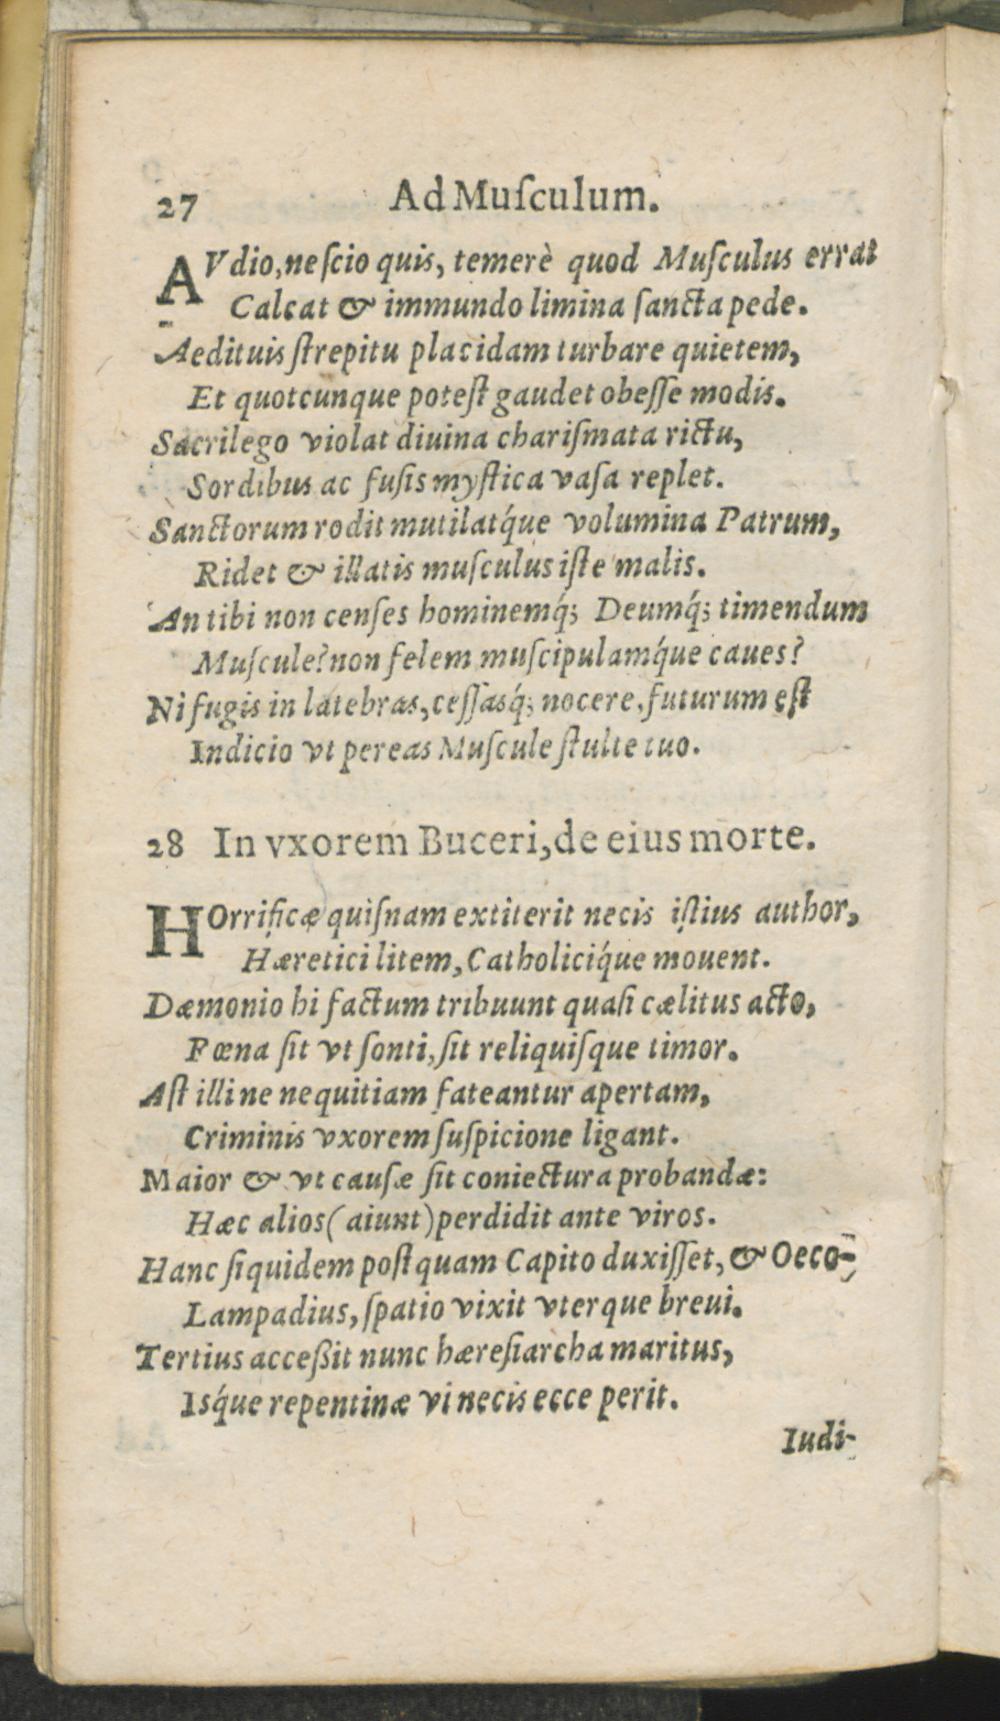 27 Ad Muſculum.
AVdio, neſcio quis, temerè quod Muſculus errat
Calcat & immundo limina ſancta pede.
Aedituis ſtrepitu placidam turbare quietem,
Et quotcunque poteſt gaudet obeſſe modis.
Sacrilego violat diuina chariſmata rictu,
Sordibus ac fuſis myſtica vaſa replet.
Sanctorum rodit mutilatq́ue volumina Patrum,
Ridet & illatis muſculus iſte malis.
An tibi non cenſes hominemq́; Deumq́; timendum
Muſcule? non felem muſcipulamq́ue caues?
Ni fugis in latebras, ceſſasq́; nocere, futurum eſt
Indicio vt pereas Muſcule ſtulte tuo.
28 In vxorem Buceri, de eius morte.
HOrrificæ quiſnam extiterit necis iſtius author,
Hæretici litem, Catholiciq́ue mouent.
Dæmonio hi factum tribuunt quaſi cælitus acto,
Pœna ſit vt ſonti, ſit reliquiſque timor.
Aſt illi ne nequitiam fateantur apertam,
Criminis vxorem ſuſpicione ligant.
Maior & vt cauſæ ſit coniectura probandæ:
Hæc alios (aiunt) perdidit ante viros.
Hanc ſiquidem poſtquam Capito duxiſſet, & Oeco-
Lampadius, ſpatio vixit vterque breui.
Tertius acceßit nunc hæreſiarcha maritus,
Isq́ue repentinæ vi necis ecce perit.
Iudi-